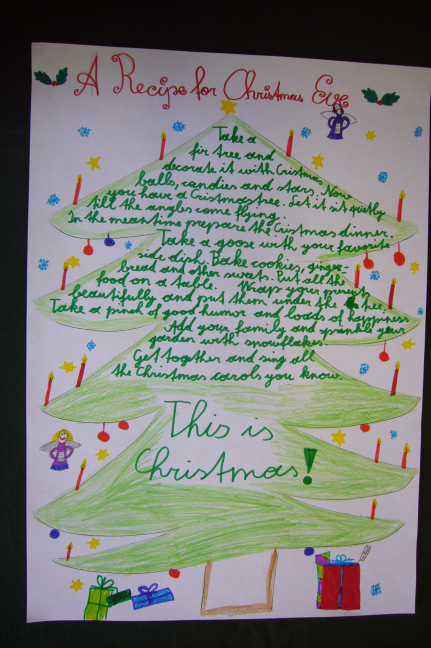 A Recipe for Christmas Eve
Take a
fir tree and
decorate it with Cristmas
balls, candies and stars. Now
you have a Cristmas tree. Let it sit quietly
till the angles come flying.
In the meantime prepare the Cristmas dinner.
Take a goose with your favorite
side dish. Bake cookies, ginger-
bread and other sweets. Put all the
food on a table. Wraps your presents
beautifully and put them under the tree.
Take a pinch of good humor and loads of happiness.
Add your family and sprinkle your
garden with snowflakes.
Get together and sing all
the Christmas carols you know.
This is
Christmas!